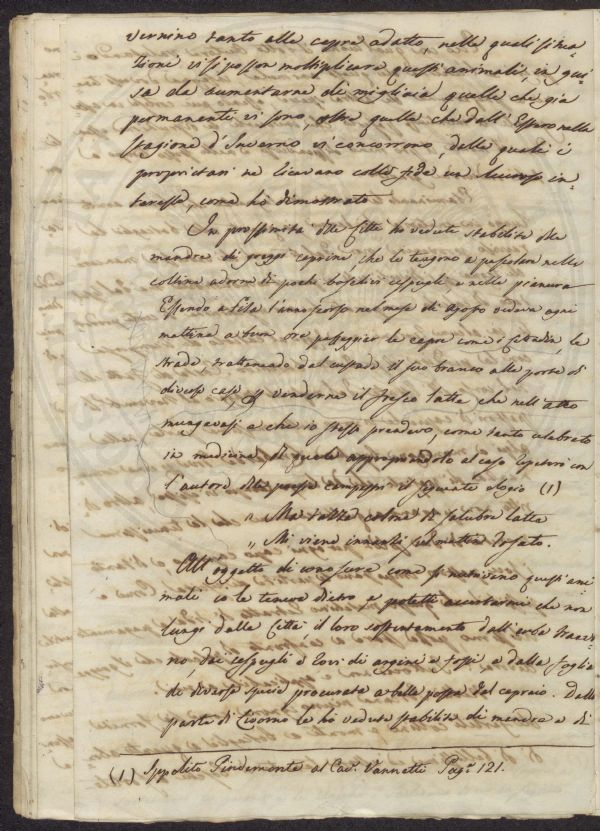 vernino tanto alle capre adatto, nelle quali situa-
zioni vi si posson moltiplicare questi animali, in gui-
sa da aumentarne di migliaia quelle che già
permanenti vi sono, oltre quelle che dall'Estero nella
stagione d'Inverno vi concorrono, dalle quali i
proprietari ne ricavano colle fide un lucroso in-
teresse, come ho dimostrato.
In prossimità delle Città ho vedute stabilite delle
mandre di greggi caprine, che le tengono a pascolare nelle
colline adorne di pochi boschivi cespugli e nelle pianure
Essendo a Pisa l'anno scorso nel mese di Agosto vedeva ogni
mattina a buon ora passeggiar le capre come i Cittadini, le
strade, trattenendo dal custode il suo branco alle porte di
diverse case, p venderne il fresco latte che nell'atto
mungevasi e che io stesso prendevo, come tanto celebrato
in medicina, di quale appropriandolo al caso ripeterò con
l'autore delle poesie campestri il seguente elogio (1)
" Ma tazza colma di salubre latte
" Mi viene innanzi sul mattin rosato.
All'oggetto di conoscere come si nutrivino questi ani
mali io le tenevo dietro e potetti accertarmi che non
lungi dalla Città, il loro sostentamento dall'erbe trae-
no, dai cespugli e rovi di argini e fossi e dalla foglia
di diverse specie procurata a bella posta dal capraio. Dalla
parte di Livorno le ho vedute stabilite di mandra e di
(1) Ippolito Pindemonte al Cav. Vannetti Pag. 121.